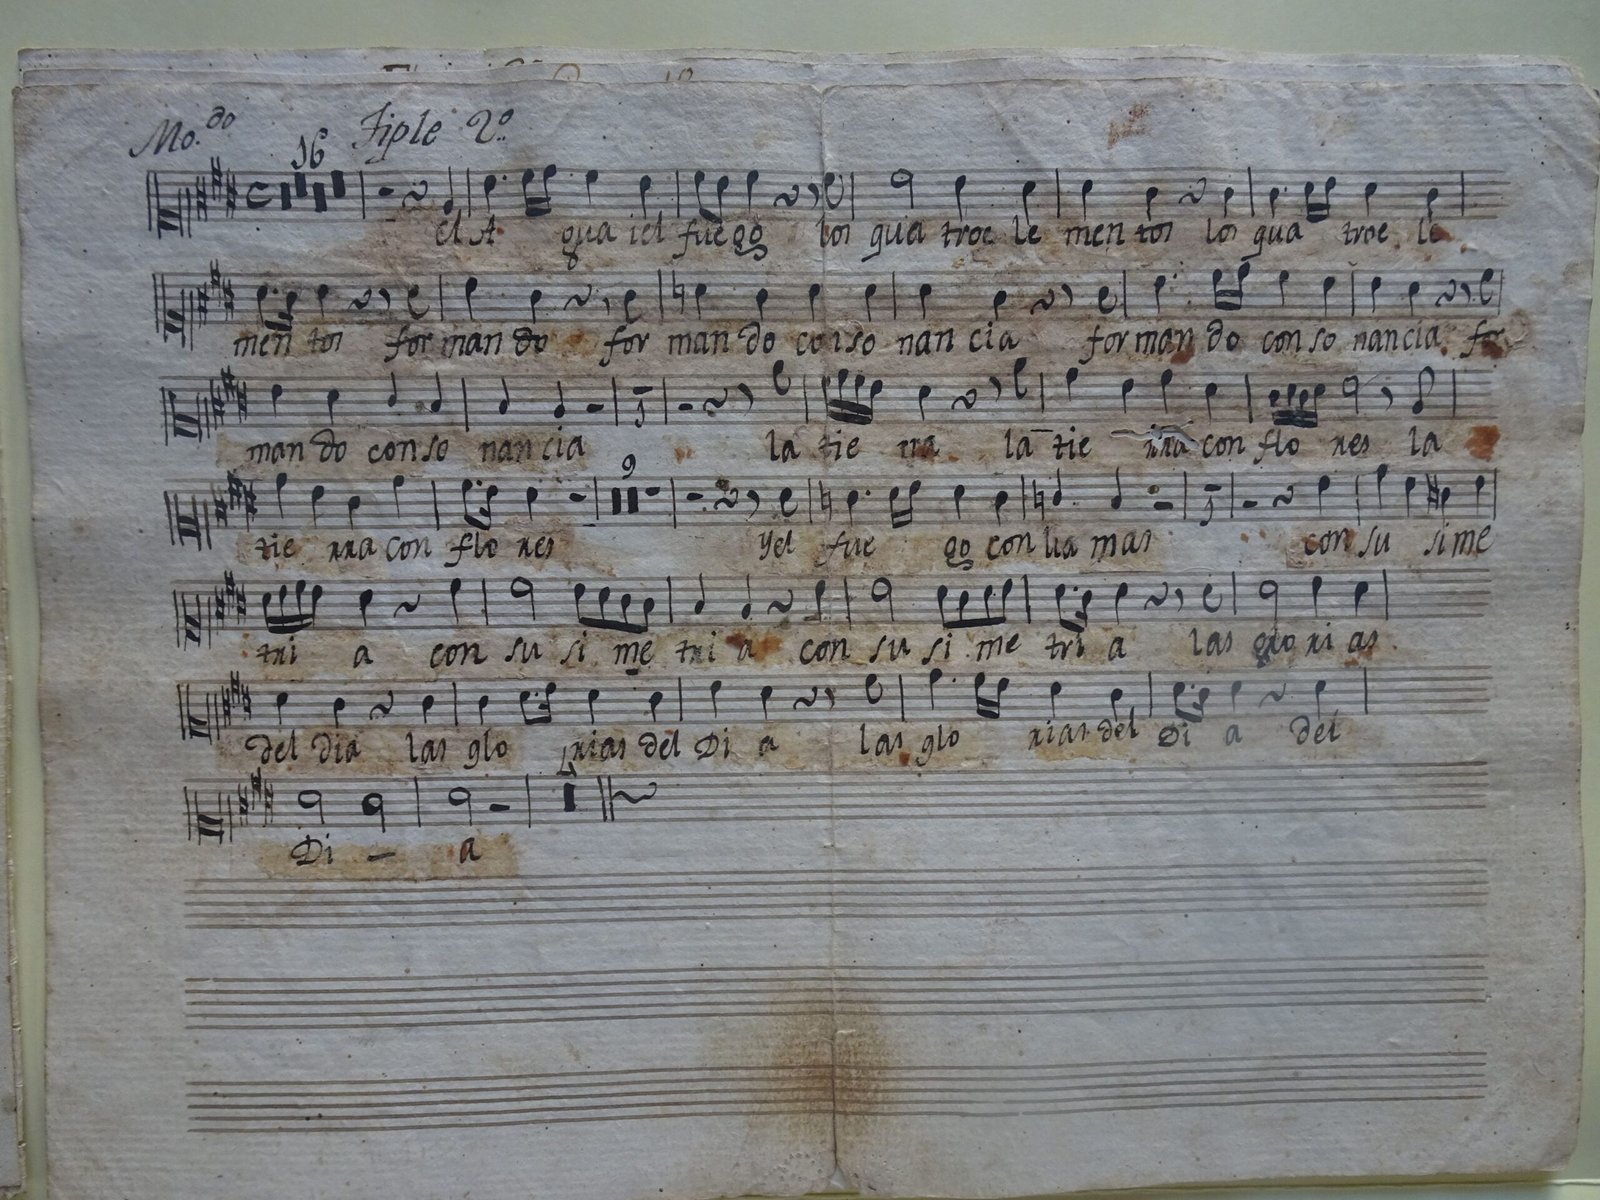 Mo.do Tiple 2o
16
el A gua iel fue go los qua troe le men tos los qua troe le
men tos for man do for man do con so nan cia for man do con so nan cia for
man do con so nan cia la tie rra la tie rra con flo res la
9
tie rra con flo res Yel fue go con lla mas con su si me
tri a con su si me tri a con su si me tri a las glo ri as
del dia las glo rias del Di a las glo rias del Di a del
Di — a